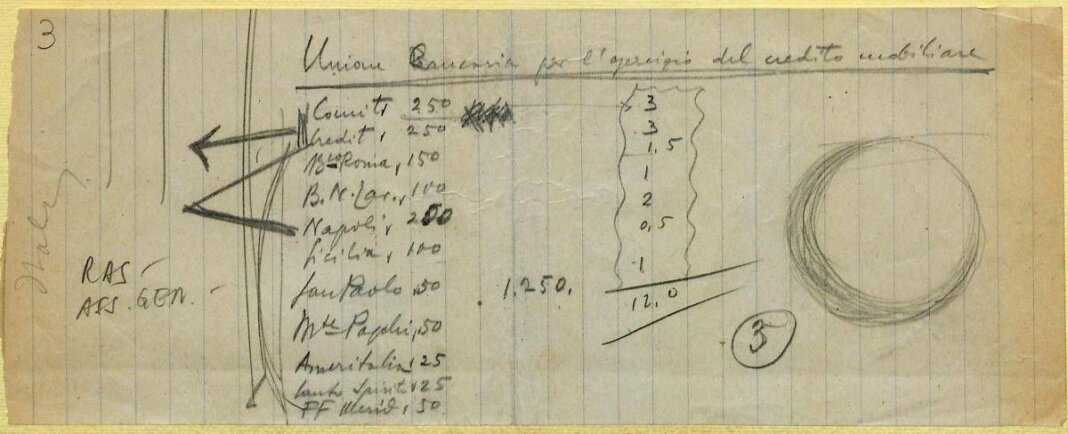 3
Unione Bancaria per l'esercizio del credito mobiliare
Comit, 250
Credit, 250
Bco Roma, 150
B.N.Lav., 100
Napoli, 200
Sicilia, 100
San Paolo, 50
Mte Paschi, 50
Ameritalia, 25
Santo Spirito, 25
FF Merid, 50
1.250.
3
3
1,5
1
2
0,5
1
12,0
5
RAS -
ASS. GEN. -
Italy